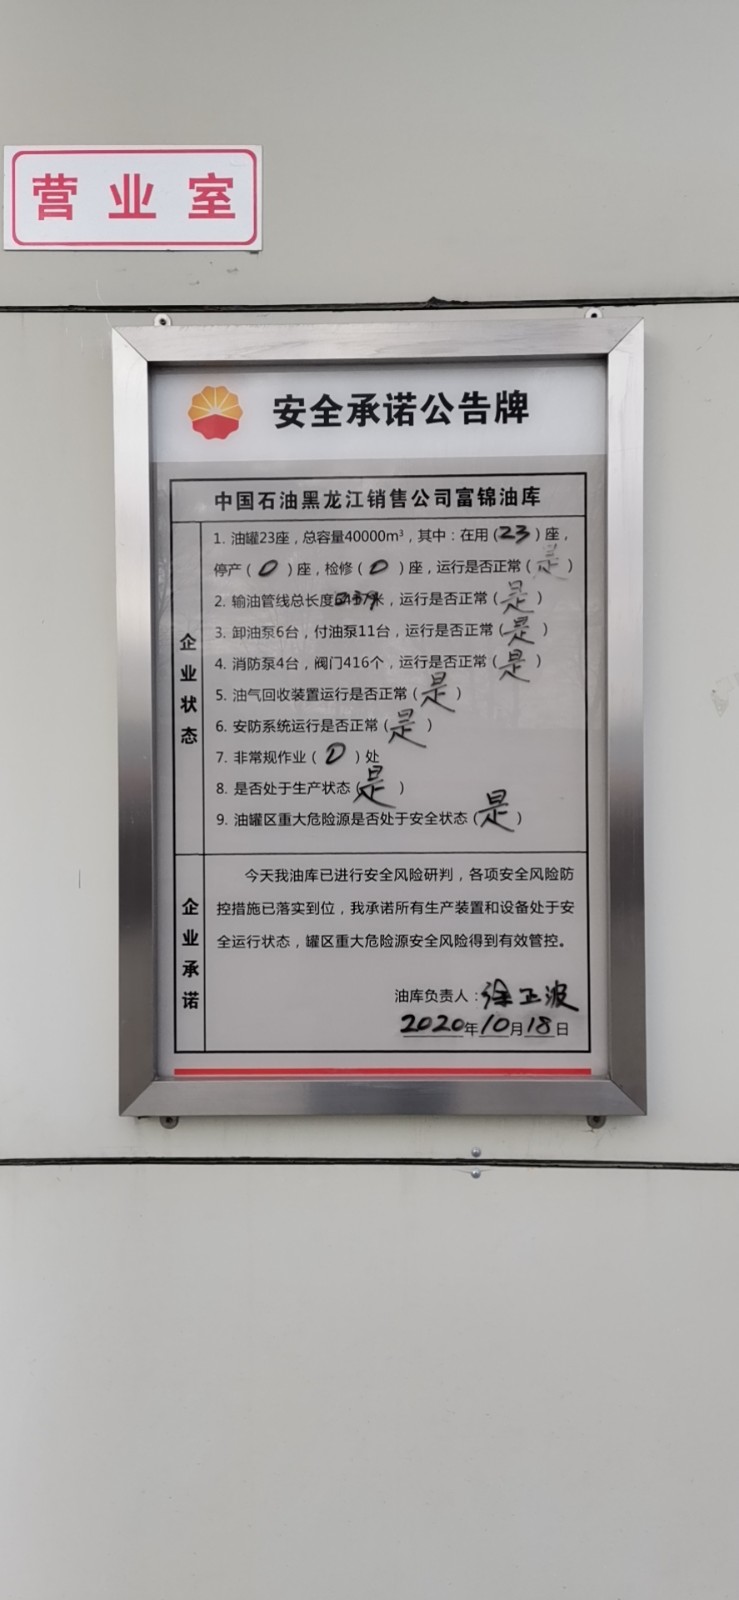 营业室
安全承诺公告牌
中国石油黑龙江销售公司富锦油库
企业状态
1. 油罐23座，总容量40000m³，其中：在用（23）座，
停产（0）座，检修（0）座，运行是否正常（是）
2. 输油管线总长度米，运行是否正常（是）
3. 卸油泵6台，付油泵11台，运行是否正常（是）
4. 消防泵4台，阀门416个，运行是否正常（是）
5. 油气回收装置运行是否正常（是）
6. 安防系统运行是否正常（是）
7. 非常规作业（0）处
8. 是否处于生产状态（是）
9. 油罐区重大危险源是否处于安全状态（是）
企业承诺
今天我油库已进行安全风险研判，各项安全风险防
控措施已落实到位，我承诺所有生产装置和设备处于安
全运行状态，罐区重大危险源安全风险得到有效管控。
油库负责人：徐正波
2020年10月18日